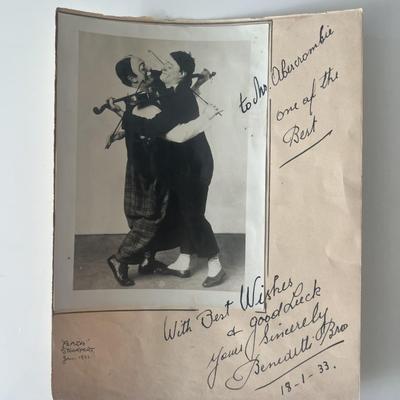 to Mr. Abercrombie
one of the
Best
With Best Wishes
& Good Luck
Yours Sincerely
Benedetti Bros
18-1-33.
STOCKPORT
Jan. 1933